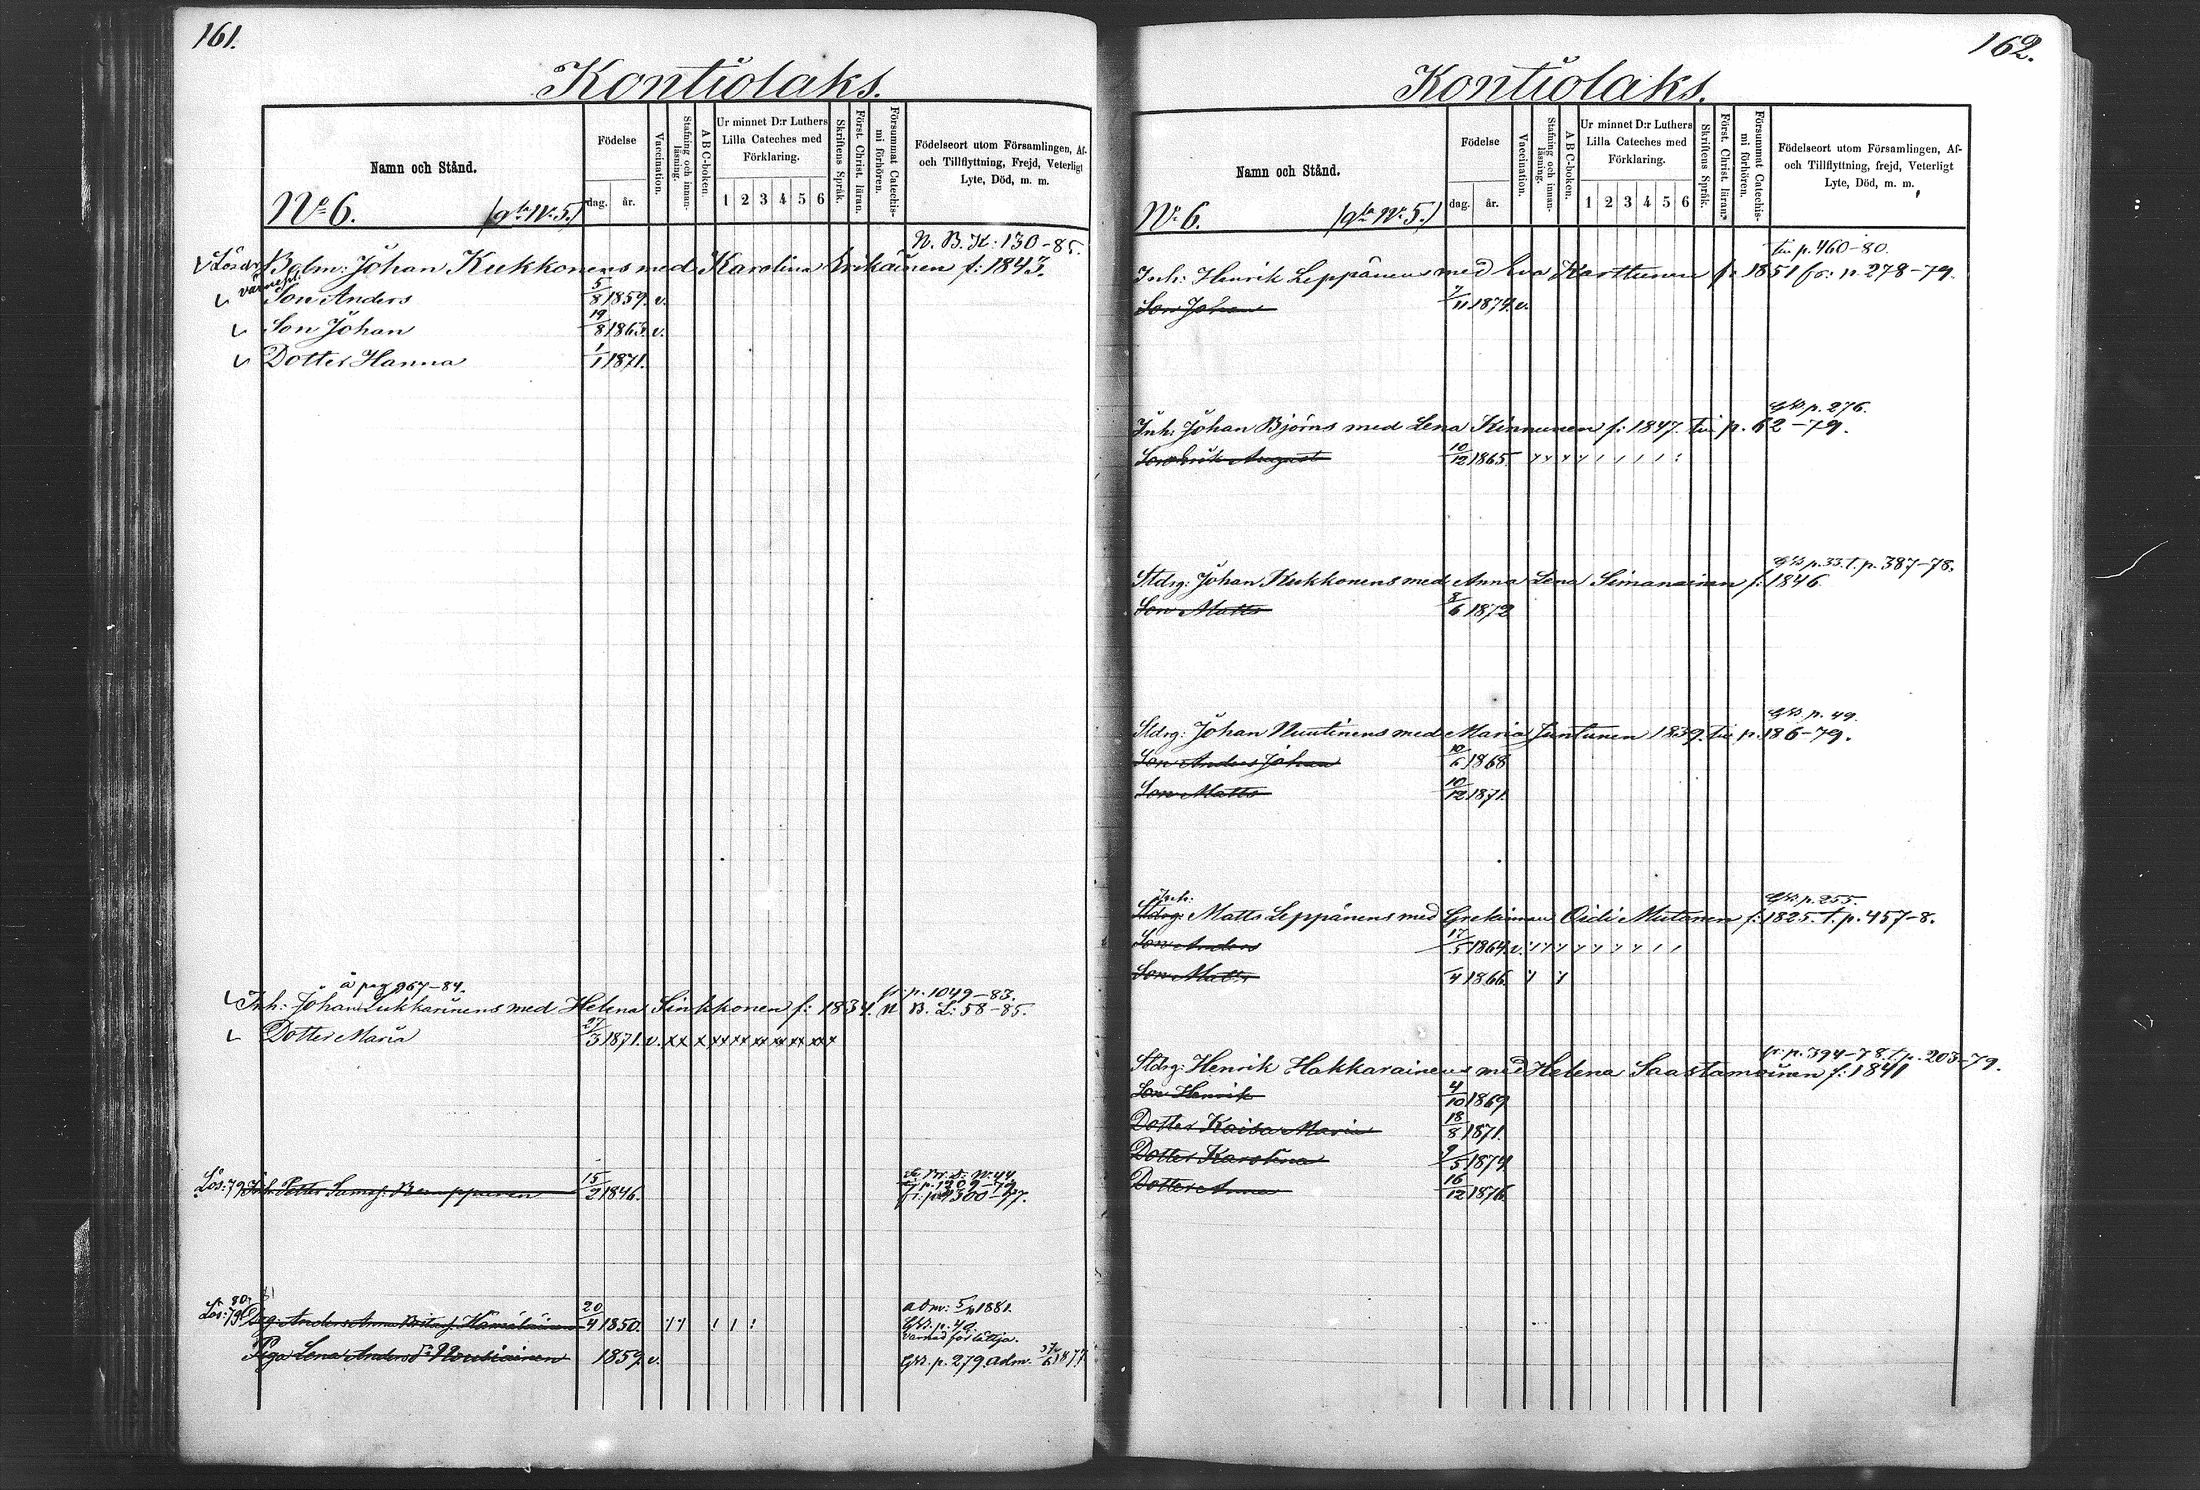 161.
Kontiolaks.
Namn och Stånd.
Födelse
dag. år.
Vaccination.
Stafning och innanläsning.
A B C-boken.
Ur minnet D:r Luthers Lilla Cateches med Förklaring.
1 2 3 4 5 6
Skriftens Språk.
Först. Christ. läran.
Försummat Catechismi förhören.
Födelseort utom Församlingen, Af- och Tillflyttning, Frejd, Veterligt Lyte, Död, m. m.
No 6. (gla No 5.)
N. B. K: 130-85.
Johan Kukkonens med Karolina Erikäinen f: 1843.
Son Anders 5/8 1859. v.
Son Johan 19/8 1863. v.
Dotter Hanna 1/1 1871.
å pag 967-84. fr: p. 1049-83.
Inh: Johan Lukkarinens med Helena Sinkkonen f: 1834. N. B. L: 58-85.
Dotter Maria 27/3 1871. v. xx x xx xx xx xx xx xx
Lös: 79 Inh: Petter Samsj: 15/2 1846.
80
Lös: 79 20/4 1850.
adm: 1881.
Gkb. p. 49.
varnad för lättja.
Piga Lena Anders d:r Nousiainen 1859. v. Gkb. p. 279. adm.
162.
Kontiolaks.
Namn och Stånd.
Födelse
dag. år.
Vaccination.
Stafning och innanläsning.
A B C-boken.
Ur minnet D:r Luthers Lilla Cateches med Förklaring.
1 2 3 4 5 6
Skriftens Språk.
Först. Christ. läran.
Försummat Catechismi förhören.
Födelseort utom Församlingen, Af- och Tillflyttning, frejd, Veterligt Lyte, Död, m. m.
No 6. (gla No 5.)
p. 460-80.
Inh: Henrik Leppänens med Eva Karttunen f: 1851 fr: p. 278-79.
Son Johan 7/11 1874. v.
Gkb. p. 276.
Inh: Johan Björns med Lena Kinnunen f: 1847. p. 62-79.
Son Erik August 10/12 1865.
Gkb p. 33. t. p. 387-78.
Stdrg: Johan Kukkonens med Anna Lena Simanainen f: 1846.
Son Matts 8/6 1872
Gkb. p. 49.
Stdrg: Johan Nuutinens med Maria Juntunen 1839. p. 186-79.
Son Anders Johan 10/6 1868
Son Matts 10/12 1871.
Inh: Gkb. p. 255.
Stdrg: Matts Leppänens med Mutanen f: 1825. t. p. 457-8.
Son Anders 17/5 1864. v.
Son Matts 1/4 1866.
fr: p. 394-78. t. p. 203-79.
Stdrg: Henrik Hakkarainens med Helena Saastamoinen f: 1841
Son Henrik 4/10 1869
Dotter Kaisa Maria 18/8 1871.
Dotter Karolina 9/5 1874
Dotter Anna 16/12 1876.